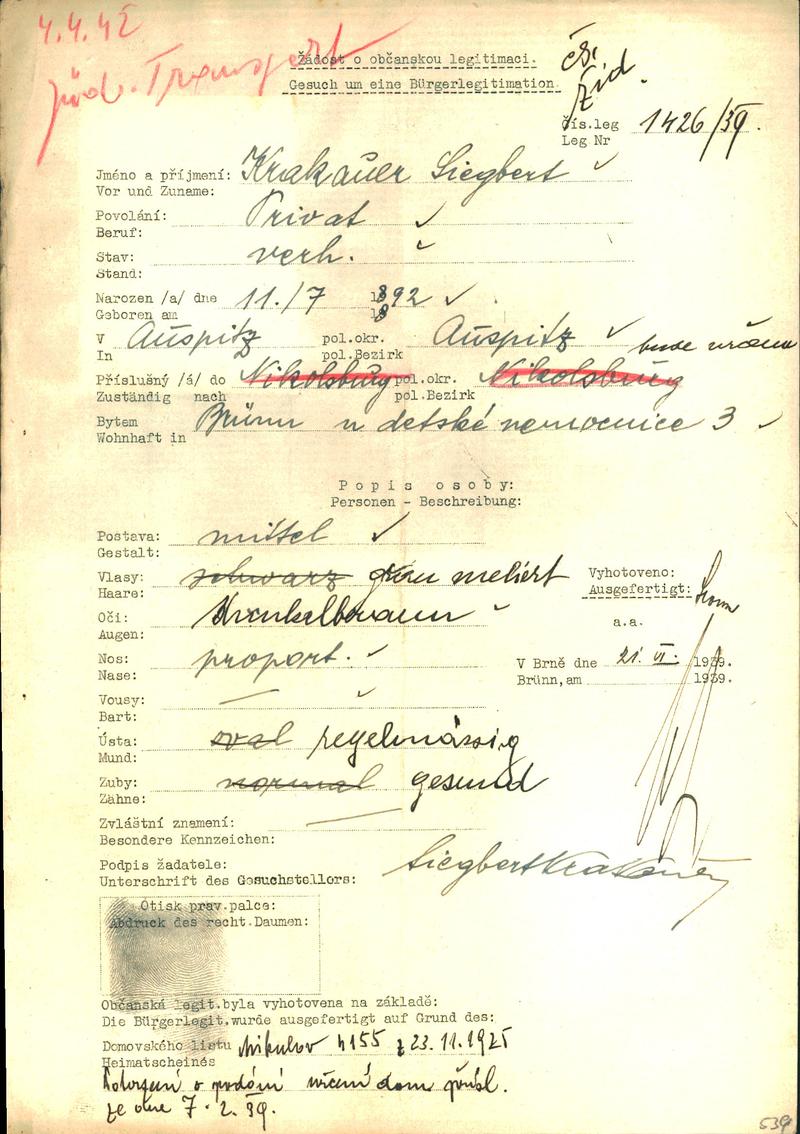 4.4.42
žid. Transport
Žádost o občanskou legitimaci.
Gesuch um eine Bürgerlegitimation.
čsl.
Žid.
čís.leg
Leg Nr
1426/39.
Jméno a příjmení: Krakauer Siegbert
Vor und Zuname:
Povolání: Privat
Beruf:
Stav: verh.
Stand:
Narozen /a/ dne 11./7 1892
Geboren am 18
V Auspitz pol.okr. Auspitz
In pol.Bezirk
bude určena
Příslušný /á/ do Nikolsburg pol.okr. Nikolsburg
Zuständig nach pol.Bezirk
Bytem Brünn u detské nemocnice 3
Wohnhaft in
Popis osoby:
Personen - Beschreibung:
Postava: mittel
Gestalt:
Vlasy: schwarz grau meliert
Haare:
Vyhotoveno:
Ausgefertigt:
Oči: dunkelbraun
Augen:
a.a.
Nos: proport.
Nase:
V Brně dne 21. VI. 1939.
Brünn,am 1939.
Vousy: —
Bart:
Ústa: oval regelmässig
Mund:
Zuby: normal gesund
Zähne:
Zvláštní znamení: —
Besondere Kennzeichen:
Podpis žadatele: Siegbert Krakauer
Unterschrift des Gesuchstellers:
Otisk prav.palce:
Abdruck des recht.Daumen:
Občanská legit.byla vyhotovena na základě:
Die Bürgerlegit.wurde ausgefertigt auf Grund des:
Domovského listu Mikulov 4155 z 23.11.1925
Heimatscheinés
Potvrzení o podání určení dom. přísl.
ze dne 7.2.39.
539